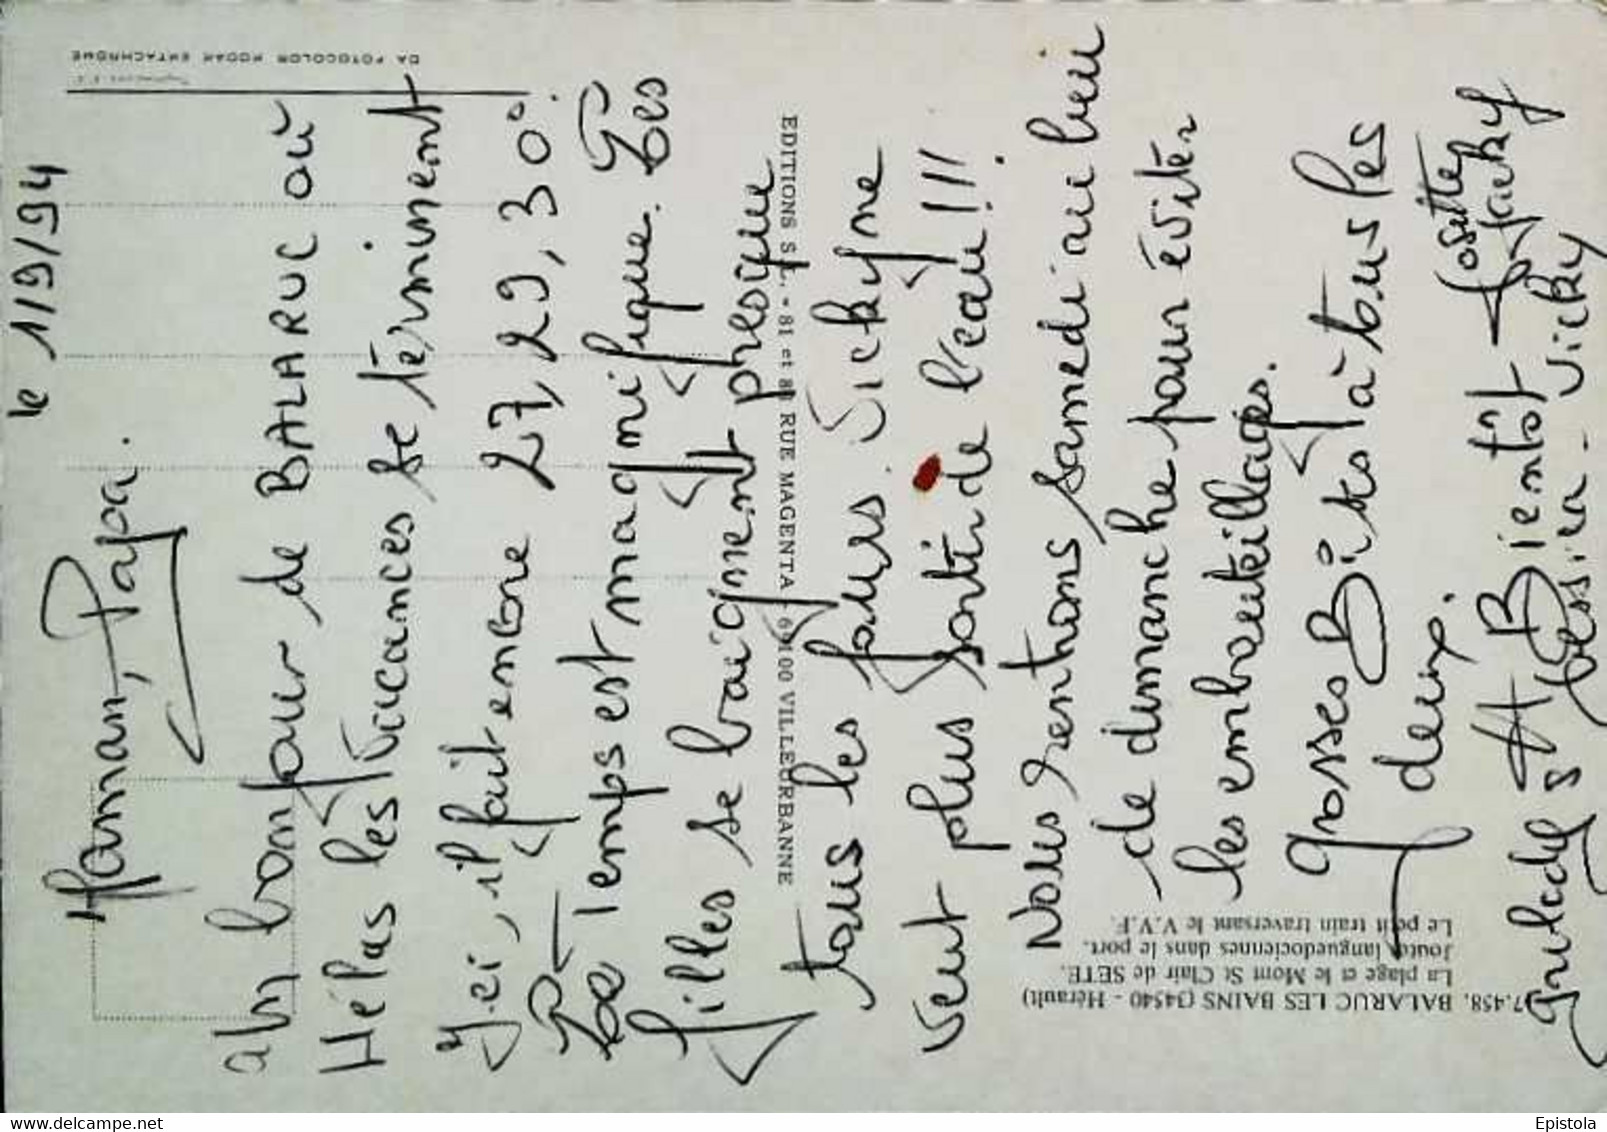 le 1/9/94
Maman, Papa.
un bonjour de BALARUC où
Hélas les vacances se terminent
Ici, il fait encore 27, 29, 30°.
Le Temps est magnifique. Les
filles se baignent presque
tous les jours. Vicky ne
veut plus sortir de l'eau !!!
Nous rentrons samedi au lieu
de dimanche pour éviter
les embouteillages.
Grosses Bises à tous les
deux.
A Bientôt
Jessica - Vicky
DA FOTOCOLOR KODAK EKTACHROME
EDITIONS S.L. - 81 et RUE MAGENTA 69100 VILLEURBANNE
7.458. BALARUC LES BAINS (34540 - Hérault)
La plage et le Mont St Clair de SETE.
Joutes languedociennes dans le port.
Le petit train traversant le V.V.F.
www.delcampe.net
Epistola